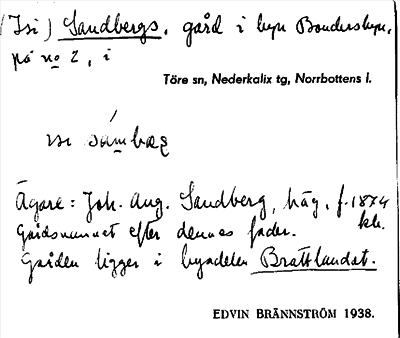 (Isi) Sandbergs, gård i byn Bondersbyn,
på no 2, i
Töre sn, Nederkalix tg, Norrbottens l.
Ägare: Joh. Aug. Sandberg, häg, f. 1874
kbr.
Gårdsnamnet efter dennes fader.
Gården ligger i bydelen Brattlandat.
EDVIN BRÄNNSTRÖM 1938.